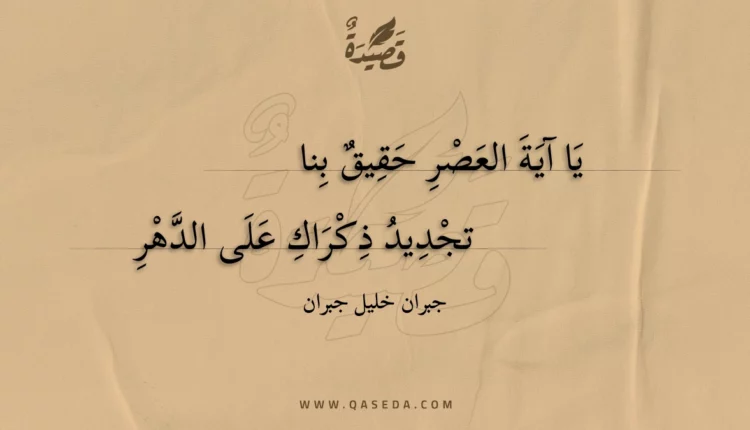 قَصِيْدَةٌ
يَا آيَةَ العَصْرِ حَقِيقٌ بِنا
تجْدِيدُ ذِكْرَاكِ عَلَى الدَّهْرِ
جبران خليل جبران
WWW.QASEDA.COM